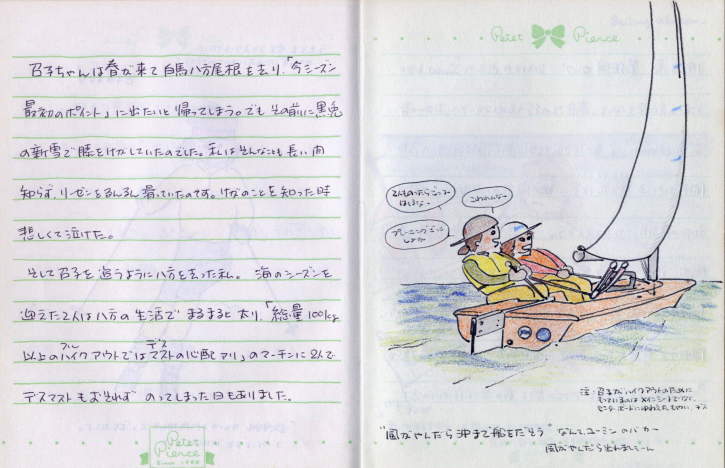 召子ちゃんは春が来て白馬八方尾根を去り、「今シーズン
最初のポイント」に出たいと帰ってしまう。でもその前に黒菱
の新雪で膝をけがしていたのでした。私はそんなことも長い間
知らず、リーゼンをるんるん滑っていたのです。けがのことを知った時
悲しくて泣けた。
そして召子を追うように八方を去った私。海のシーズンを
迎えた2人は八方の生活でまるまると太り、「総量100kg
以上のフルハイクアウトではデスマストの心配アリ」のマーチンに2人で
デスマストもおそれず のってしまった日もありました。
Petit Pierce
Since 1988
Petit Pierce
こわれんなー
プレーニング
注:召子がハイクアウトのために
もっているのはメインシートでなく、
センターボードに
"風がやんだら沖まで船をだそう" なんて、ユーミンのバカー
風がやんだら出れませーん